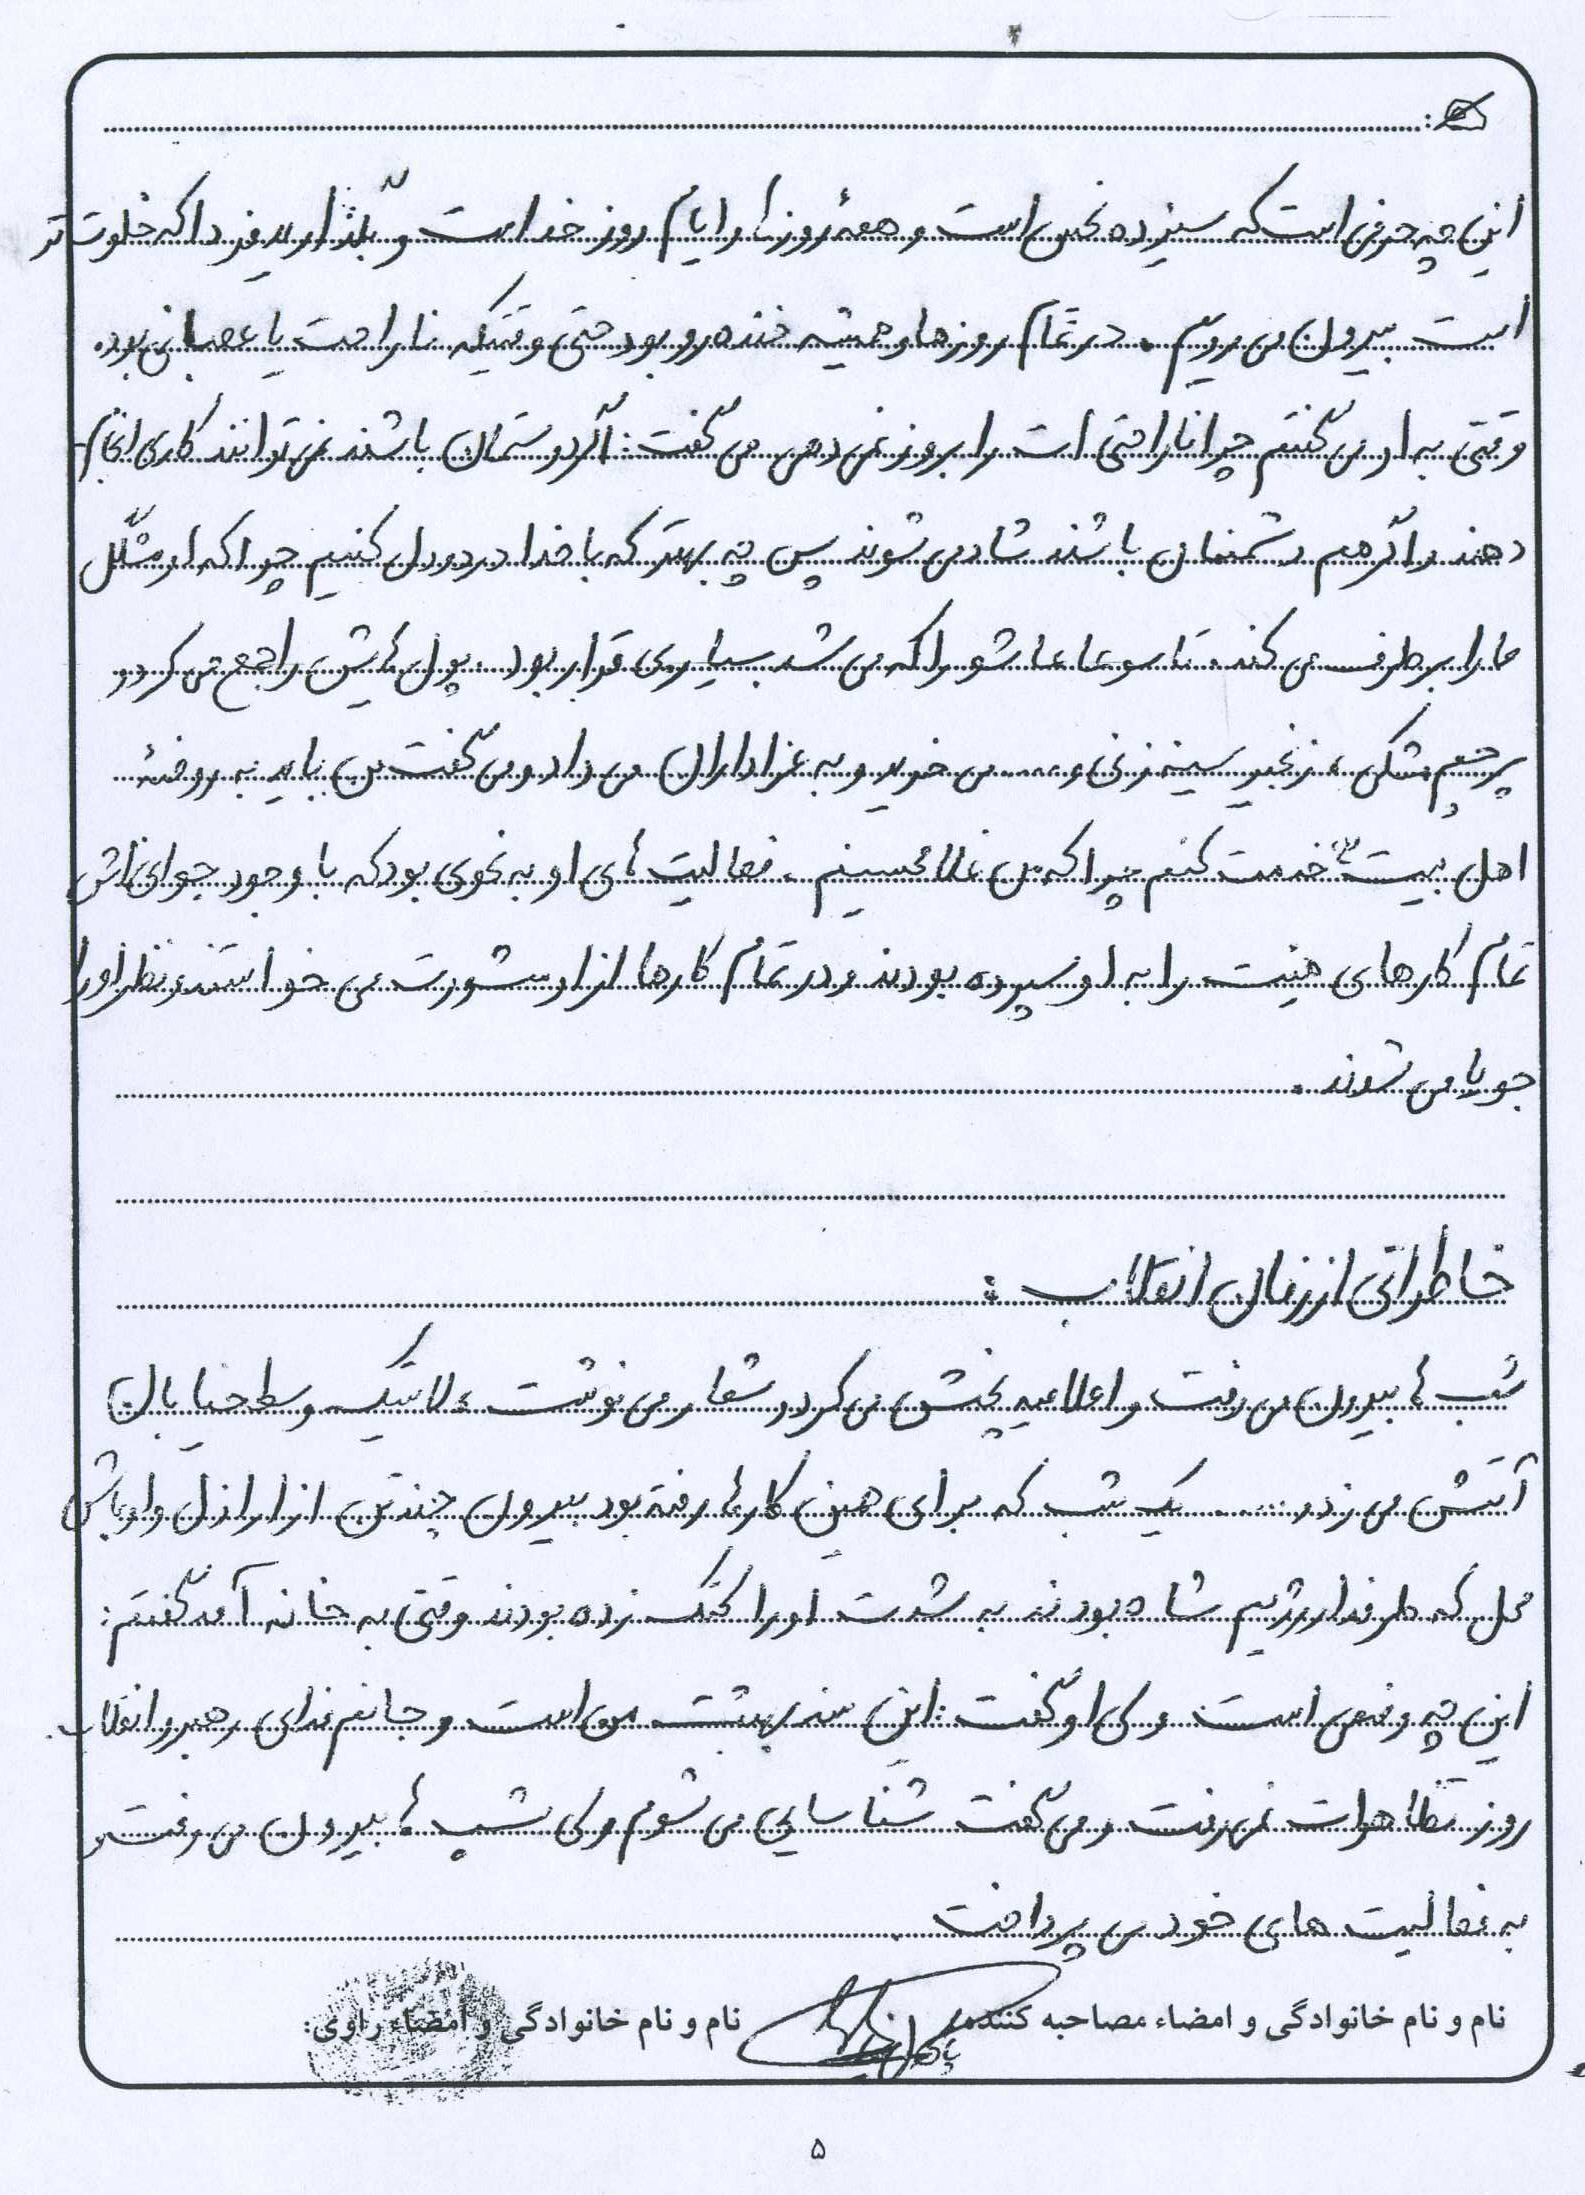 این چه حرفی است که سیزده نحس است و همهٔ روزها و ایام روز خداست و بگذارید فردا که خلوت تر
است بیرون می رویم . در تمام روزها همیشه خنده رو بود حتی وقتیکه ناراحت یا عصبانی بوده
وقتی به او می گفتم چرا ناراحتی ات را بروز نمی دهی می گفت : اگر دوستمان باشند نمی توانند کاری انجام
دهند و اگر هم دشمنمان باشند شاد می شوند پس چه بهتر که با خدا درد دل کنیم چرا که او مشکل
ما را برطرف می کند . تاسوعا عاشورا که می شد بسیار بی قرار بود . پول هایش را جمع می کرد و
پرچم مشکی ، زنجیر سینه زنی و .... می خرید و به عزاداران می داد و می گفت من باید به روضهٔ
اهل بیت (ع) خدمت کنم چرا که من غلام حسینم . فعالیت های او به نحوی بود که با وجود جوانی اش
تمام کارهای هیئت را به او سپرده بودند و در تمام کارها از او مشورت می خواستند و نظر او را
جویا می شدند .
خاطراتی از زمان انقلاب :
شب ها بیرون می رفت و اعلامیه پخش می کرد و شعار می نوشت ، لاستیک وسط خیابان
آتش می زد و ..... یک شب که برای همین کارها رفته بود بیرون چند تن از اراذل و اوباش
محل که طرفدار رژیم شاه بودند به شدت او را کتک زده بودند وقتی به خانه آمد گفتم :
این چه وضعی است ولی او گفت : این سند بهشت من است و جانم فدای رهبر و انقلاب .
روز تظاهرات نمی رفت و می گفت شناسایی می شوم ولی شب ها بیرون می رفت و
به فعالیت های خود می پرداخت .
نام و نام خانوادگی و امضاء مصاحبه کننده: نام و نام خانوادگی و امضاء راوی:
۵